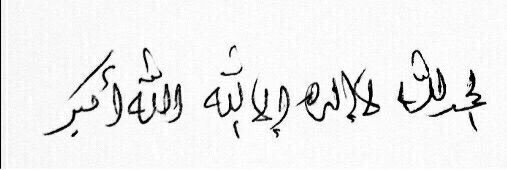 الحمد لله لا إله إلا الله الله أكبر